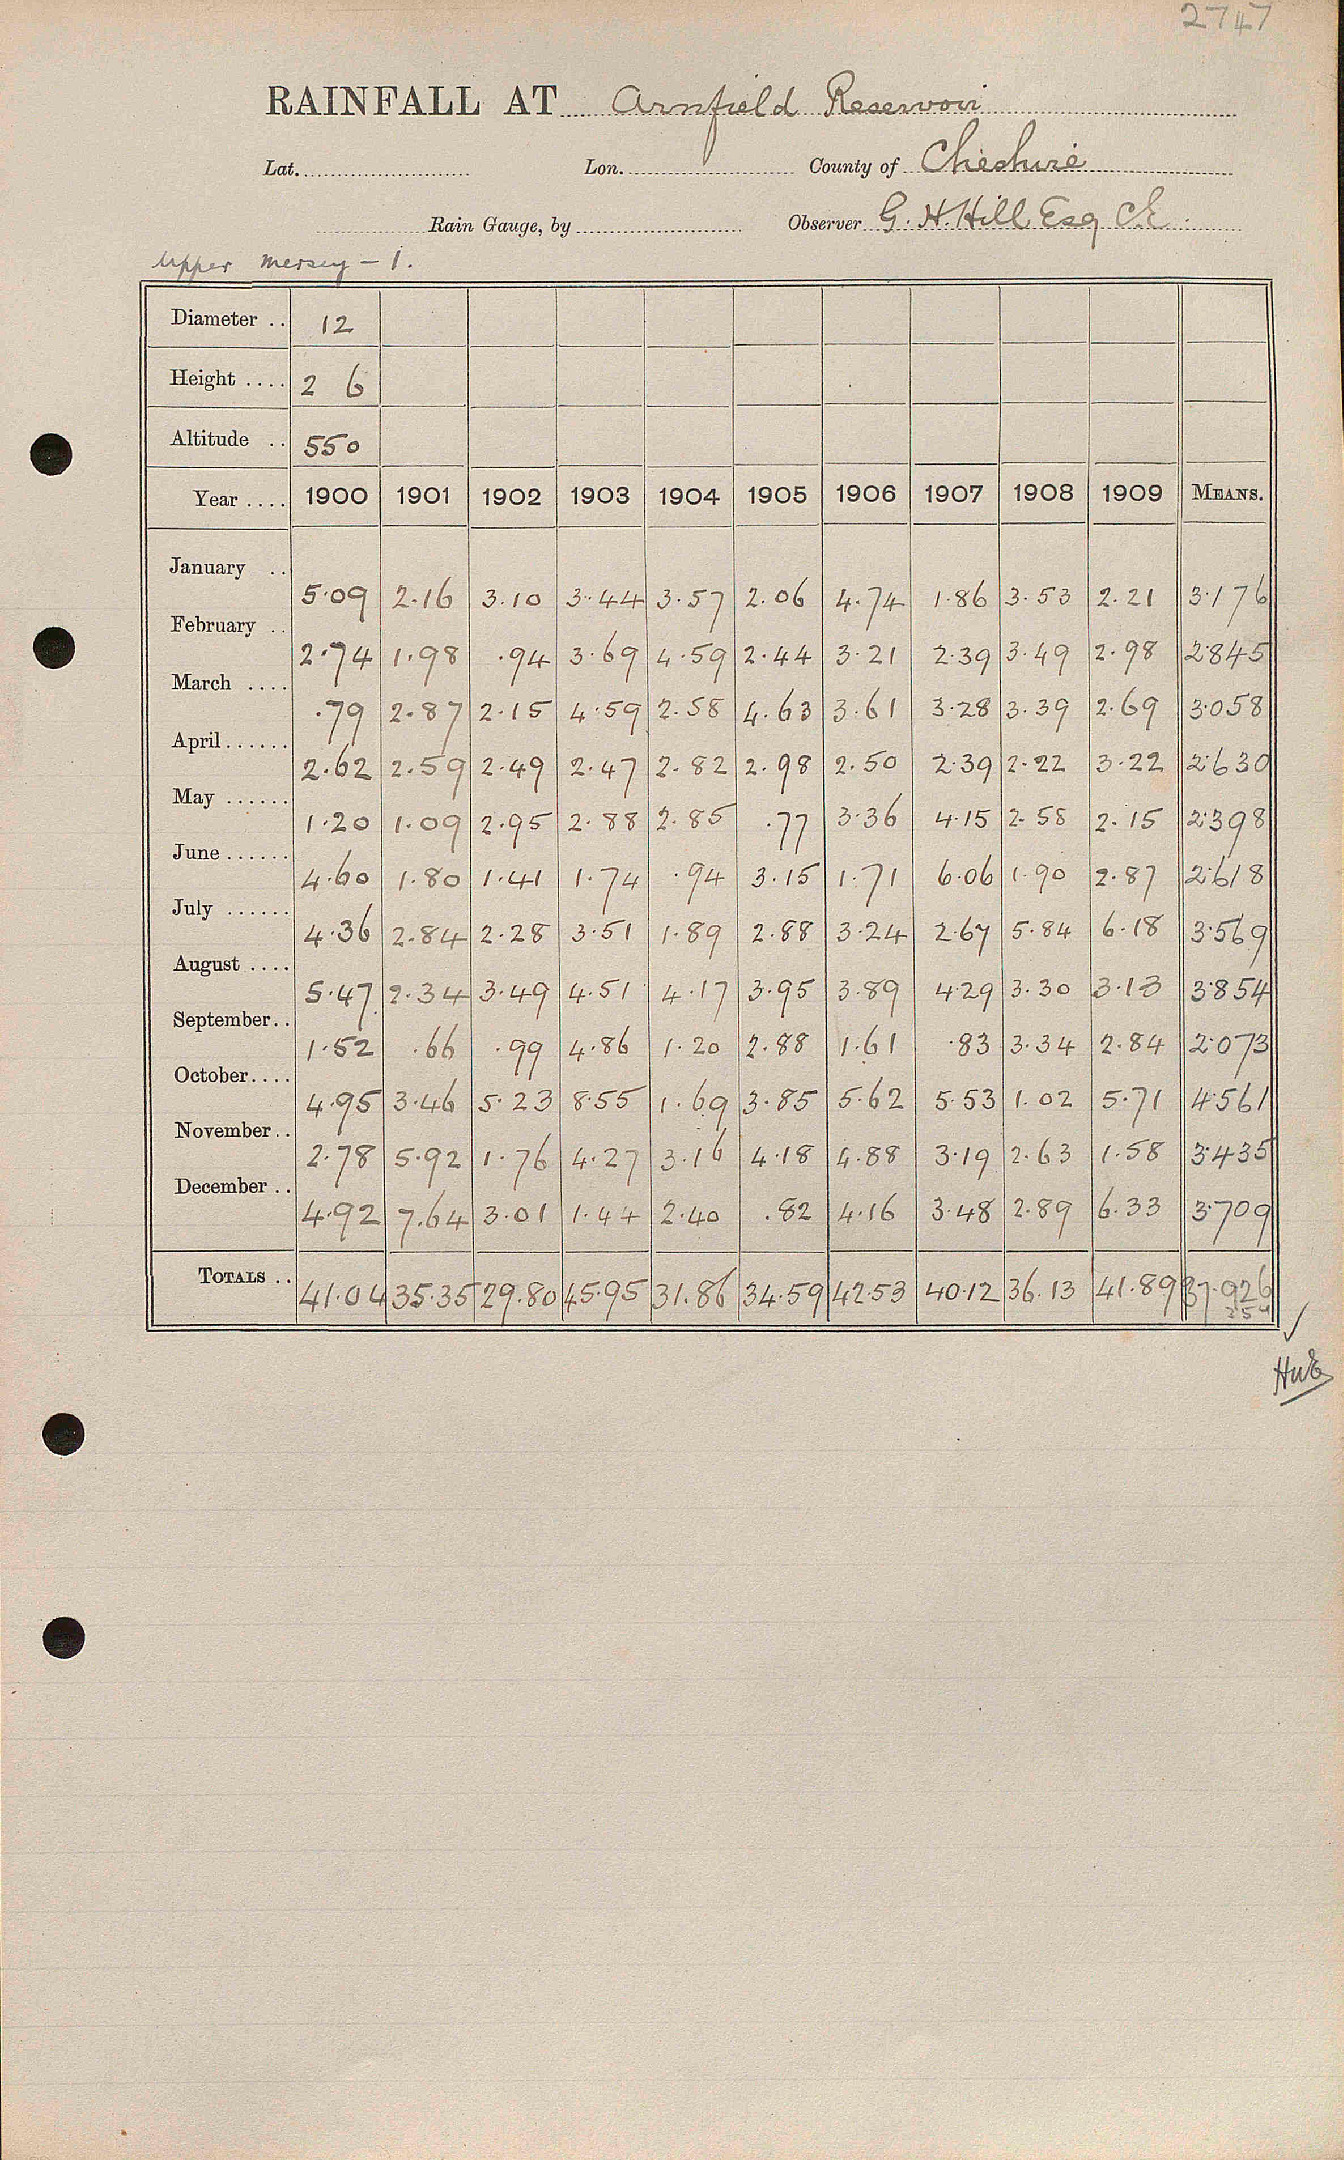 2747
RAINFALL AT Arnfield Reservoir
Lat. Lon. County of Cheshire
Rain Gauge, by Observer G. H. Hill Esq C.E.
Upper Mersey – 1.
Diameter .. 12
Height .... 2 6
Altitude .. 550
Year .... 1900 1901 1902 1903 1904 1905 1906 1907 1908 1909 MEANS.
January .. 5.09 2.16 3.10 3.44 3.57 2.06 4.74 1.86 3.53 2.21 3.176
February .. 2.74 1.98 .94 3.69 4.59 2.44 3.21 2.39 3.49 2.98 2.845
March .... .79 2.87 2.15 4.59 2.58 4.63 3.61 3.28 3.39 2.69 3.058
April ...... 2.62 2.59 2.49 2.47 2.82 2.98 2.50 2.39 2.22 3.22 2.630
May ...... 1.20 1.09 2.95 2.88 2.85 .77 3.36 4.15 2.58 2.15 2.398
June ...... 4.60 1.80 1.41 1.74 .94 3.15 1.71 6.06 1.90 2.87 2.618
July ...... 4.36 2.84 2.28 3.51 1.89 2.88 3.24 2.67 5.84 6.18 3.569
August .... 5.47 2.34 3.49 4.51 4.17 3.95 3.89 4.29 3.30 3.13 3.854
September .. 1.52 .66 .99 4.86 1.20 2.88 1.61 .83 3.34 2.84 2.073
October .... 4.95 3.46 5.23 8.55 1.69 3.85 5.62 5.53 1.02 5.71 4.561
November .. 2.78 5.92 1.76 4.27 3.16 4.18 4.88 3.19 2.63 1.58 3.435
December .. 4.92 7.64 3.01 1.44 2.40 .82 4.16 3.48 2.89 6.33 3.709
TOTALS .. 41.04 35.35 29.80 45.95 31.86 34.59 42.53 40.12 36.13 41.89 37.926